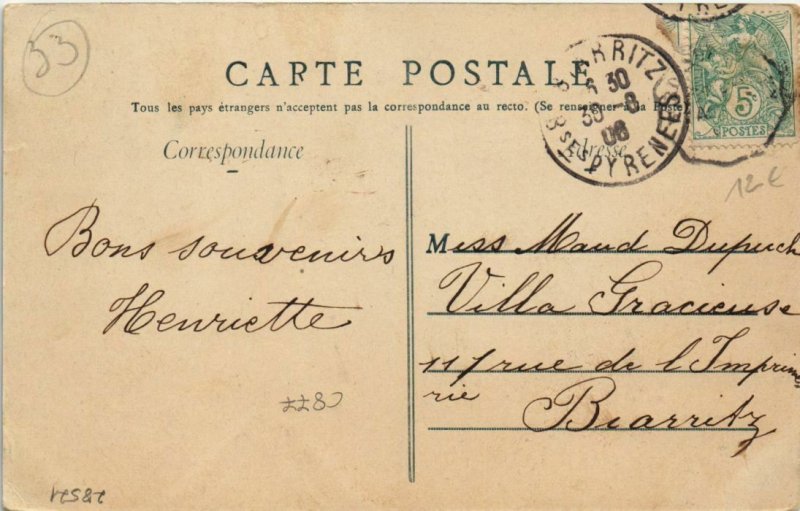 33
CARTE POSTALE
Tous les pays étrangers n'acceptent pas la correspondance au recto. (Se renseigner à la Poste
Correspondance
Adresse
BIARRITZ
30
30 -8
06
BSES PYRENEES
5c
POSTES
12€
Bons souvenirs
Henriette
Miss Maud Dupuch
Villa Gracieuse
117 rue de l'Imprime
rie
Biarritz